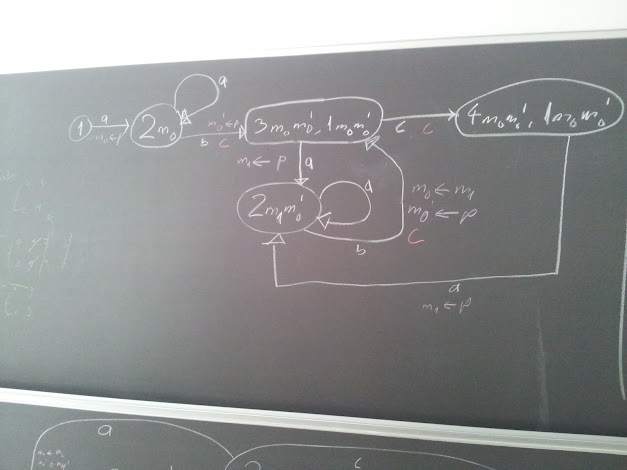 a
1 a 2m₀ m₀'←p 3m₀m₀', 1m₀m₀' c c 4m₀m₀', 1m₀m₀'
m₀←p b c
m₁←p a
2m₁m₀' a m₀←m₁
m₀'←p
c
b
a
m₁←p
a
c